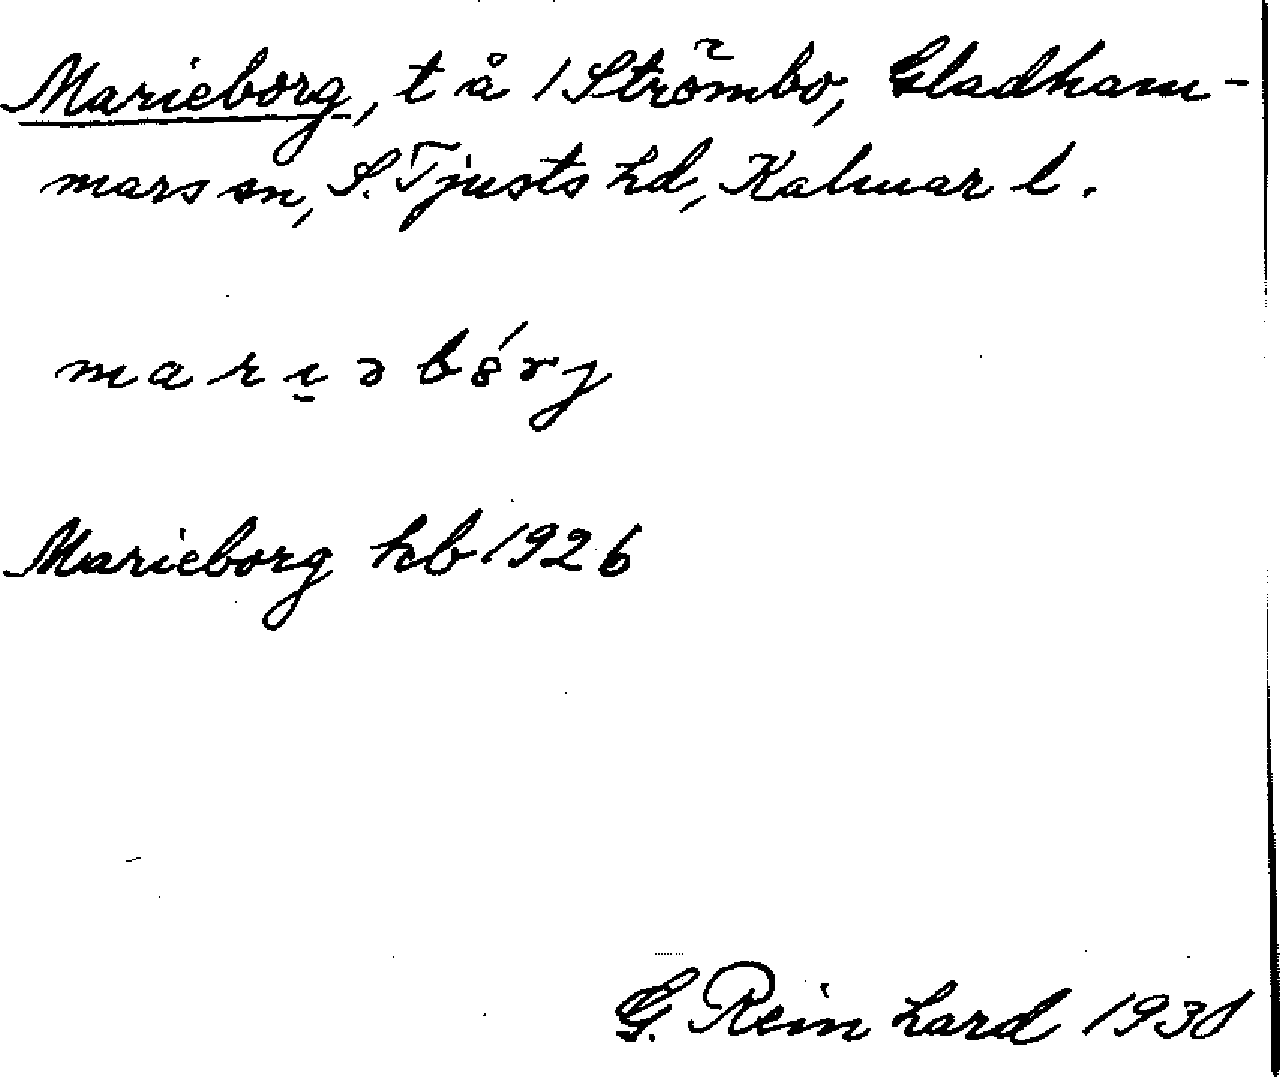 Marieborg, t å 1 Strömbo, Gladham-
mars sn, S. Tjusts hd, Kalmar l.
marı̱əbȣ́rj
Marieborg kb 1926
G. Reinhard 1938